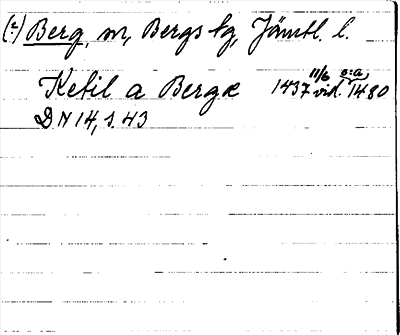 (?) Berg, m, Bergs sg, Jämtl. l.
Ketil a Bergæ 1437 11/6 vid. 1480 o:a,
DN 14, s. 43